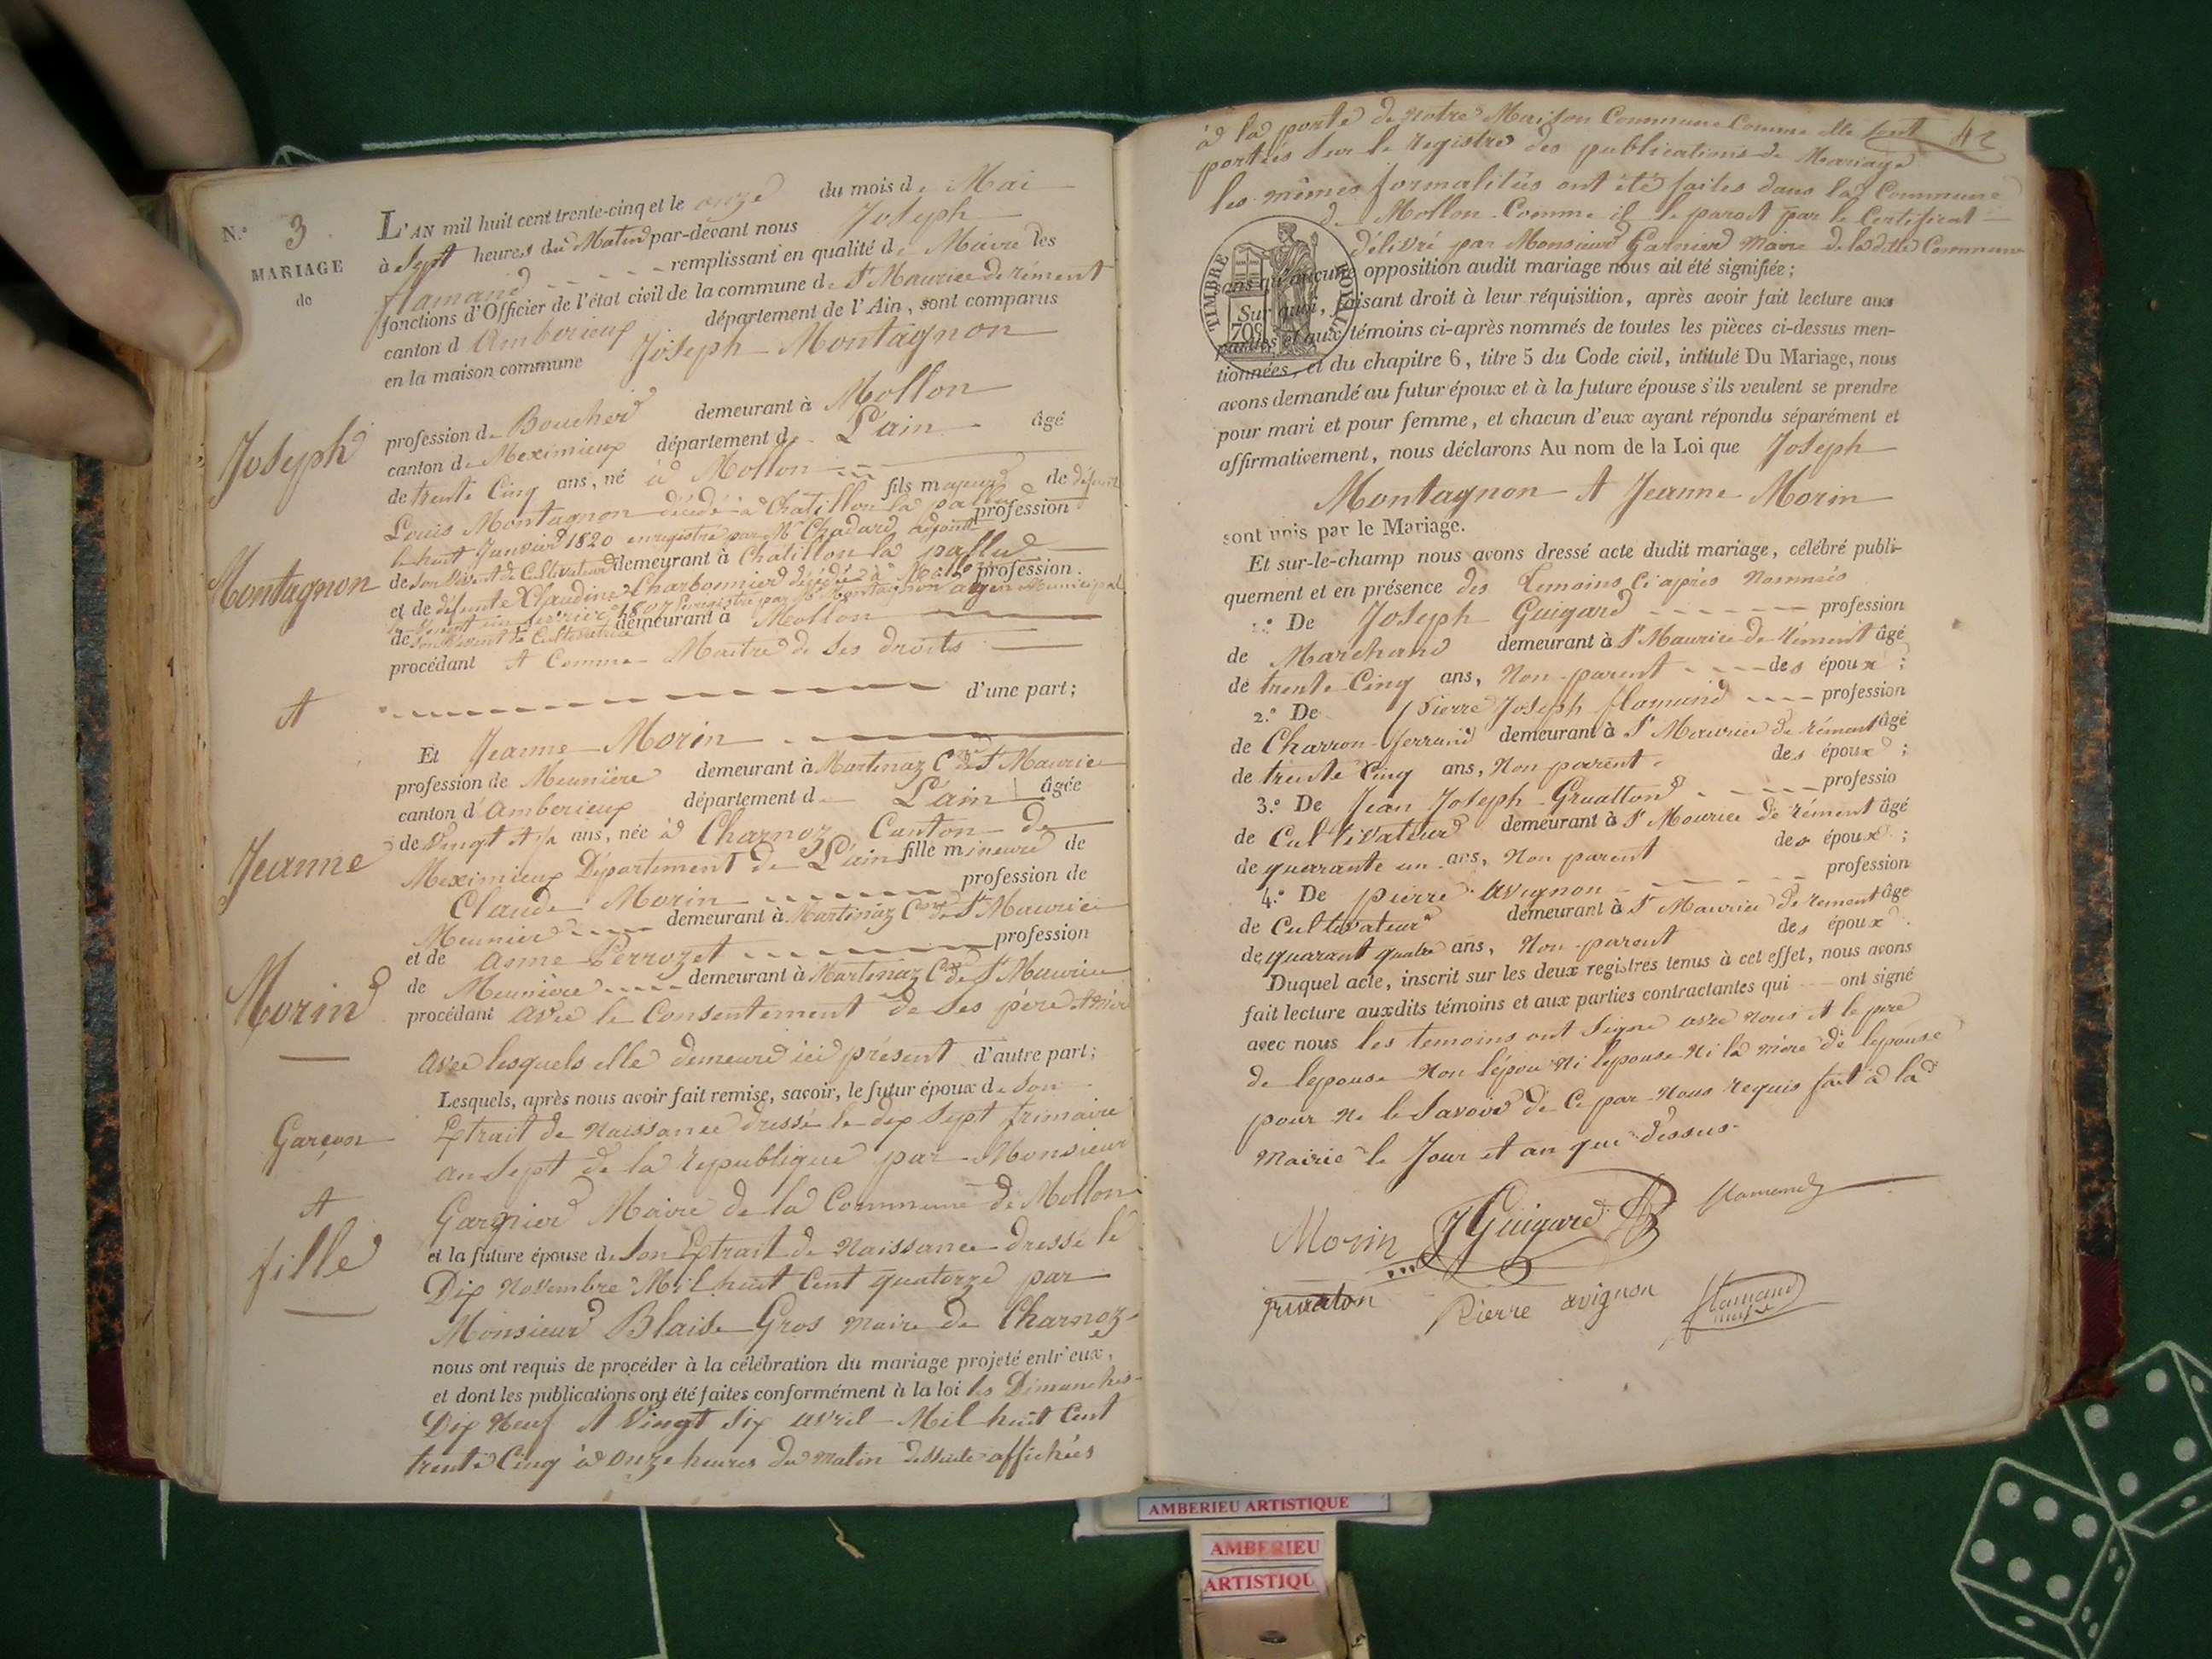 N.° 3.
MARIAGE
de
Joseph
Montagnon
et
Jeanne
Morin
Garçon
et
fille
L'AN mil huit cent trente-cinq et le onze du mois de Mai
à Sept heures du Matin par-devant nous Joseph
flamand remplissant en qualité de Maire les
fonctions d'Officier de l'état civil de la commune de St Maurice de rément
canton d'Amberieux département de l'Ain, sont comparus
en la maison commune Joseph Montagnon
profession de Boucher demeurant à Mollon
canton de Meximieux département de L'ain âgé
de trente Cinq ans, né à Mollon
fils majeur de défunt
Louis Montagnon décédé à Chatillon la palud profession
le huit Janvier 1820 enregistré par Mr Chadard adjoint
de son vivant de Cultivateur demeurant à Chatillon la pallud
et de défunte Claudine Charbonnier décédée à Mollon profession
1807 enregistré par Montagnon agent Municipal
de son vivant de Cultivatrice demeurant à Mollon
procédant et Comme Maitre de ses droits
d'une part;
Et Jeanne Morin
profession de Meunière demeurant à Martinaz Cne de St Maurice
canton d'Amberieux département de L'ain âgée
de Vingt ans, née à Charnoz Canton de
Meximieux Département de L'ain fille mineure de
Claude Morin profession de
Meunier demeurant à Martinaz Cne de St Maurice
et de Anne Perrozet profession
de Meunière demeurant à Martinaz Cne de St Maurice
procédant avec le Consentement de ses père et mère
avec lesquels elle demeure ici présent d'autre part;
Lesquels, après nous avoir fait remise, savoir, le futur époux de son
Extrait de Naissance dressé le dix Sept frimaire
an Sept de la République par Monsieur
Garnier Maire de la Commune de Mollon
et la future épouse de Son Extrait de Naissance dressé le
Dix Novembre Mil huit Cent quatorze par
Monsieur Blaise Gros maire de Charnoz
nous ont requis de procéder à la célébration du mariage projeté entr'eux,
et dont les publications ont été faites conformément à la loi les Dimanches
Dix Neuf et Vingt Six avril Mil huit Cent
trente Cinq à onze heures du Matin dessuite affichées
42
à la porte de notre Maison Commune Comme elle sont
portées sur le Registre des publications de Mariage
les mêmes formalités ont été faites dans la Commune
de Mollon Comme il le paroit par le Certificat
délivré par Monsieur Garnier Maire de la dite Commune
TIMBRE ROYAL
70c
sans qu'aucune opposition audit mariage nous ait été signifiée;
Sur quoi, faisant droit à leur réquisition, après avoir fait lecture aux
parties et aux témoins ci-après nommés de toutes les pièces ci-dessus men-
tionnées, et du chapitre 6, titre 5 du Code civil, intitulé Du Mariage, nous
avons demandé au futur époux et à la future épouse s'ils veulent se prendre
pour mari et pour femme, et chacun d'eux ayant répondu séparément et
affirmativement, nous déclarons Au nom de la Loi que Joseph
Montagnon et Jeanne Morin
sont unis par le Mariage.
Et sur-le-champ nous avons dressé acte dudit mariage, célébré publi-
quement et en présence des temoins Ci après Nommés
1.° De Joseph Guigard profession
de Marchand demeurant à St Maurice de Rément âgé
de trente Cinq ans, Non parent des époux;
2.° De pierre Joseph flamand profession
de Charron ferrand demeurant à St Maurice de rément âgé
de trente Cinq ans, Non parent des époux;
3.° De Jean Joseph Gruatton professio
de Cultivateur demeurant à St Mourice De rément âgé
de quarante un ans, Non parent des époux;
4.° De pierre avignon profession
de Cultivateur demeurant à St Maurice de rement âgé
de quarant quatre ans, Non parent des époux.
Duquel acte, inscrit sur les deux registres tenus à cet effet, nous avons
fait lecture auxdits témoins et aux parties contractantes qui ont signé
avec nous les temoins ont Signé avec nous et le pere
de lepouse Non lépou Ni lepouse Ni la mère de lepouse
pour Ne le Savoir de Ce par Nous requis fait à la
Mairie le Jour et an que dessus.
Morin J Guigard flamand
gruaton Pierre avignon flamand
AMBERIEU ARTISTIQUE
AMBERIEU
ARTISTIQU